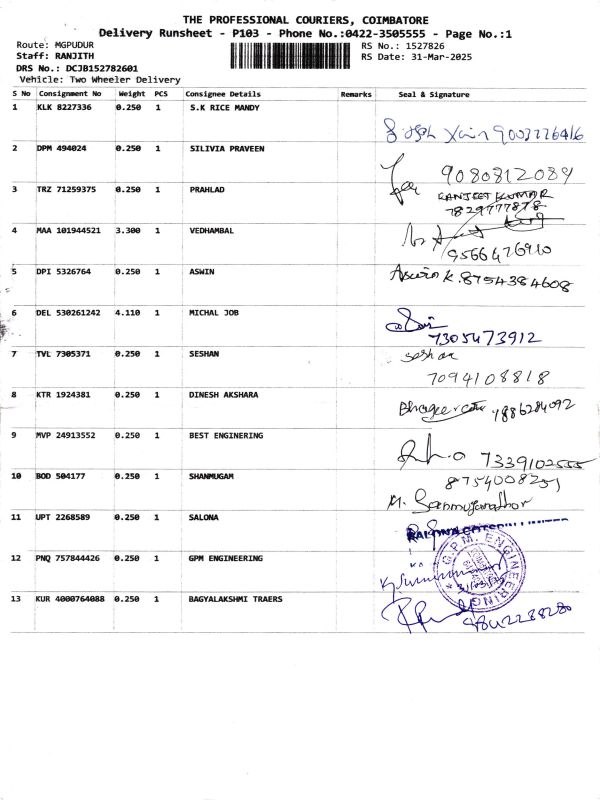 THE PROFESSIONAL COURIERS, COIMBATORE
Delivery Runsheet - P103 - Phone No.:0422-3505555 - Page No.:1
Route: MGPUDUR
RS No.: 1527826
Staff: RANJITH
RS Date: 31-Mar-2025
DRS No.: DCJB152782601
Vehicle: Two Wheeler Delivery
S No Consignment No Weight PCS Consignee Details Remarks Seal & Signature
1 KLK 8227336 0.250 1 S.K RICE MANDY
9003226416
2 DPM 494024 0.250 1 SILIVIA PRAVEEN
9080812089
3 TRZ 71259375 0.250 1 PRAHLAD
RANJEET KUMAR
7829777878
4 MAA 101944521 3.300 1 VEDHAMBAL
9566476910
5 DPI 5326764 0.250 1 ASWIN
Aswin K. 8754384608
6 DEL 530261242 4.110 1 MICHAL JOB
7305473912
7 TVL 7305371 0.250 1 SESHAN
Seshan
7094108818
8 KTR 1924381 0.250 1 DINESH AKSHARA
9886284092
9 MVP 24913552 0.250 1 BEST ENGINERING
7339102555
10 BOD 504177 0.250 1 SHANMUGAM
8754008251
11 UPT 2268589 0.250 1 SALONA
LIMITED
12 PNQ 757844426 0.250 1 GPM ENGINEERING
G.P.M. ENGINEERING
13 KUR 4000764088 0.250 1 BAGYALAKSHMI TRAERS
9842288280